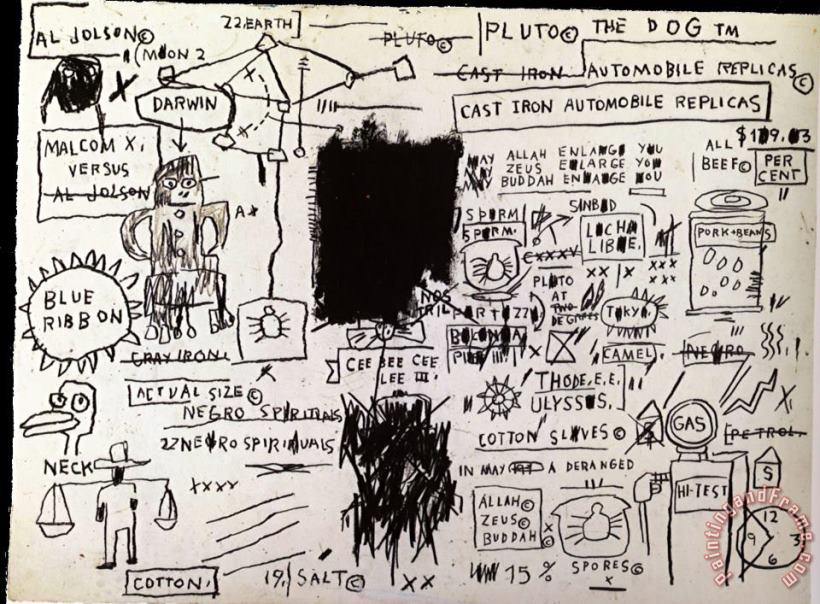 AL JOLSON©
(MOON 2
22. EARTH]
PLUTO©
PLUTO© THE DOG TM
CAST IRON AUTOMOBILE REPLICAS©
CAST IRON AUTOMOBILE REPLICAS
DARWIN
MALCOM X.
VERSUS
AL JOLSON
MAY ALLAH ENLARGE YOU
MAY ZEUS ENLARGE YOU
MAY BUDDAH ENLARGE YOU
ALL $179.03
BEEF©
PER
CENT
SPERM
SPERM.
SINBAD
LUCHA
LIBRE.
PORK+BEANS
CXXXV
XX | X
XXX
XXX
BLUE
RIBBON
GRAY IRON.
PLUTO
AT
TWO
DEGREES
TOKYO.
NOS
TRIL
PART 22
CAMEL.
NEGRO
CEE BEE CEE
LEE III.
ACTUAL SIZE©
NEGRO SPIRITUALS
22 NEGRO SPIRITUALS
THODE, E.E.
ULYSSUS,
COTTON SLAVES ©
$
GAS
PETROL.
NECK
IN MAY A DERANGED
XXXX
ALLAH©
ZEUS©
BUDDAH©
HI-TEST
$
12
9
3
6
COTTON.
19.| SALT©
XX
15 %
SPORES©
X
PaintingandFrame.com